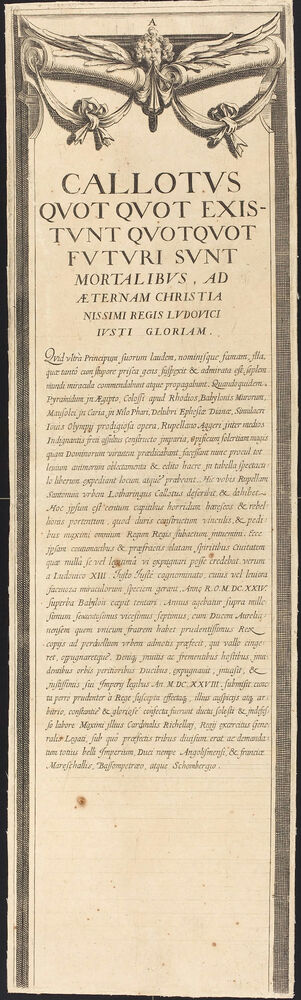 A
CALLOTVS
QVOT QVOT EXIS-
TVNT QVOTQVOT
FVTVRI SVNT
MORTALIBVS, AD
ÆTERNAM CHRISTIA
NISSIMI REGIS LVDOVICI
IVSTI GLORIAM.
Quid vltra Principum suorum laudem, nominisque famam, illa,
quæ tantò cum stupore prisca gens suspexit & admirata est, septem
mundi miracula commendabunt atque propagabunt. Quandoquidem
Pyramidum in Ægipto, Colossi apud Rhodios, Babylonis Murorum,
Mausolei in Caria, in Nilo Phari, Delubri Ephesiæ Dianæ, Simulacri
Iouis Olympij prodigiosa opera, Rupellano Aggeri inter medios
Indignantis freti æstus constructo imparia, opificum solertiam magis
quam Dominorum virtutem prædicabant, facessant nunc procul tot
leuium animorum oblectamenta & edito hacce in tabella spectacu-
lo liberum expediant locum atque præbeant. Hic vobis Rupellam
Santonum vrbem Lotharingus Callotus describit & exhibet.
Hoc ipsum est centum capitibus horridum hæreseos & rebel-
lionis portentum, quod duris constrictum vinculis, & pedi-
bus magnimi omnium Regum Regis subactum intuemini. Ecce
ipsam contumacibus & præfractis elatam spiritibus Ciuitatem
quæ nulla se vel legitima vi expugnari posse credebat verum
a Ludouico XIII. Iusto Iustè cognominato, cuius vel leuiora
facinora miraculorum speciem gerant, Anno R.O.M. DC.XXIV.
superba Babylon cœpit tentari. Annus agebatur supra mille-
simum sexcentesimus vicesimus septimus, cum Ducem Aurelia-
nensem quem vnicum fratrem habet prudentissimus Rex
copijs ad perduellum vrbem admotis præfecit, qui vallo cinge-
ret, oppugnaretque. Denique inuitis ac frementibus hostibus, inui-
dentibus orbis peritioribus Ducibus, expugnauit, intrauit, &
Iustissimis sui Imperij legibus An. M.DC.XXVIII. submisit cunc-
ta porro prudenter à Rege suscepta effectaque, illius auspicijs atque ar-
bitrio, constanter & gloriosè confecta fuerunt ductu solesti & indefes-
so labore Magni illius Cardinalis Richelley, Regij exercitus Gene-
ralis Legati, sub quo præfectis tribus diuisum erat ac demanda-
tum totius belli Imperium, Duci nempe Angolismensi, & franciæ
Mareschallis, Bassompetræo, atque Schombergio.